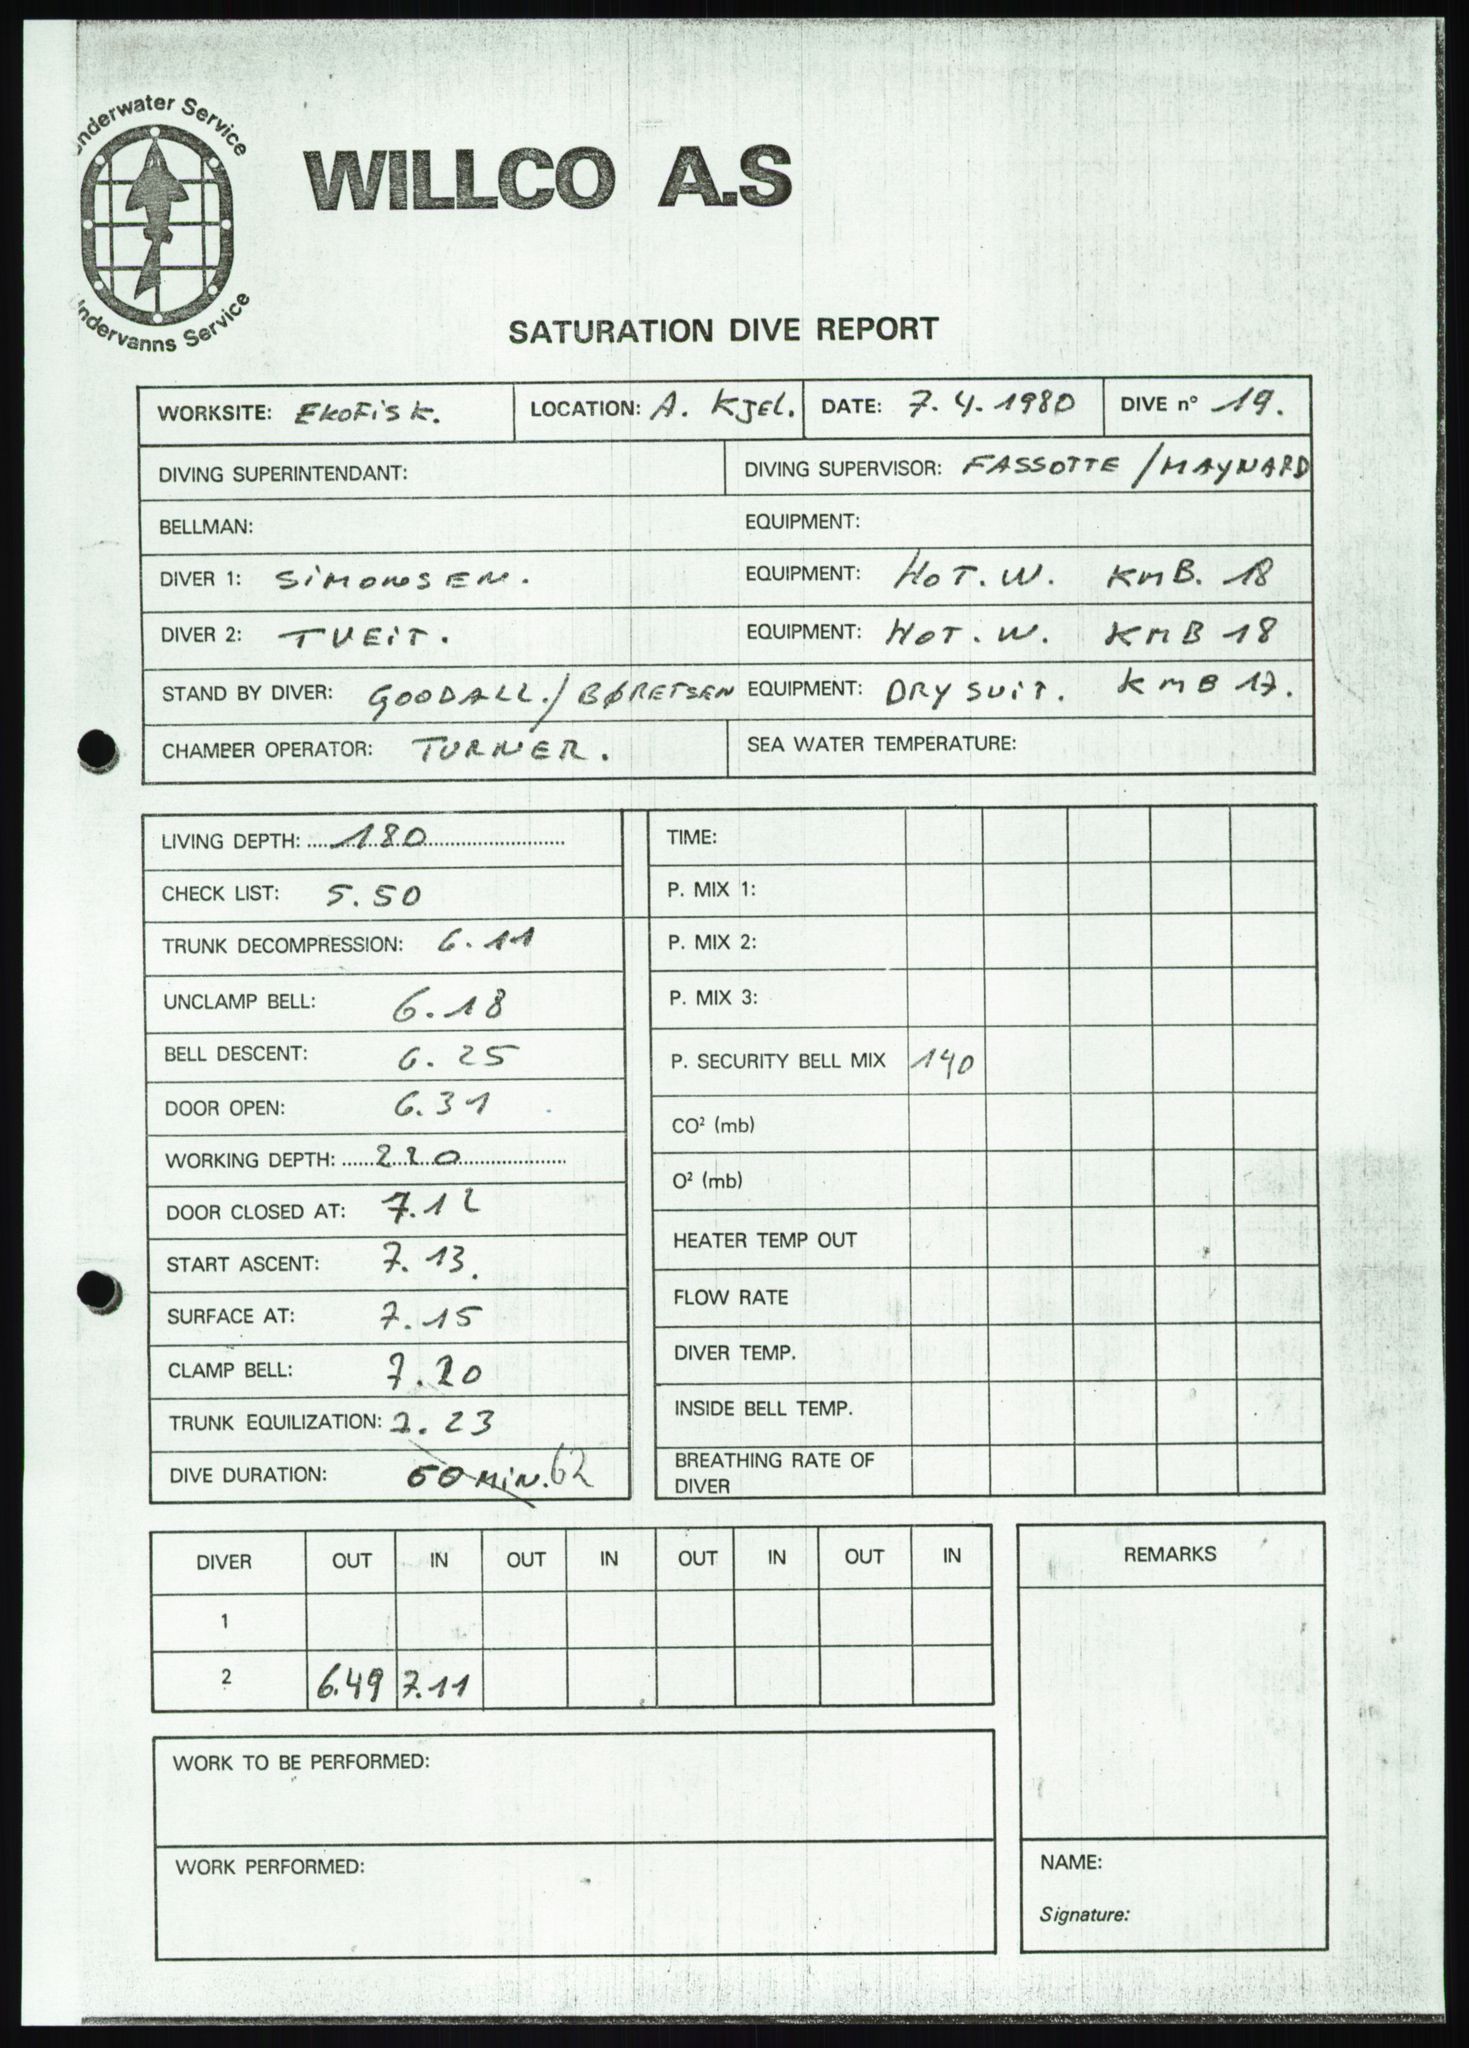 Underwater Service
Undervanns Service
WILLCO A.S
SATURATION DIVE REPORT
WORKSITE: EKOFISK. LOCATION: A. KJEL. DATE: 7.4.1980 DIVE n° 19.
DIVING SUPERINTENDANT: DIVING SUPERVISOR: FASSOTTE / MAYNARD
BELLMAN: EQUIPMENT:
DIVER 1: SIMONSEN. EQUIPMENT: HOT. W. KMB. 18
DIVER 2: TVEIT. EQUIPMENT: HOT. W. KMB 18
STAND BY DIVER: GOODALL./BØRETSEN EQUIPMENT: DRY SUIT. KMB 17.
CHAMBER OPERATOR: TURNER. SEA WATER TEMPERATURE:
LIVING DEPTH: 180
CHECK LIST: 5.50
TRUNK DECOMPRESSION: 6.11
UNCLAMP BELL: 6.18
BELL DESCENT: 6.25
DOOR OPEN: 6.31
WORKING DEPTH: 220
DOOR CLOSED AT: 7.12
START ASCENT: 7.13.
SURFACE AT: 7.15
CLAMP BELL: 7.20
TRUNK EQUILIZATION: 7.23
DIVE DURATION: 60 MIN. 62
TIME:
P. MIX 1:
P. MIX 2:
P. MIX 3:
P. SECURITY BELL MIX 140
CO² (mb)
O² (mb)
HEATER TEMP OUT
FLOW RATE
DIVER TEMP.
INSIDE BELL TEMP.
BREATHING RATE OF
DIVER
DIVER OUT IN OUT IN OUT IN OUT IN
1
2 6.49 7.11
WORK TO BE PERFORMED:
WORK PERFORMED:
REMARKS
NAME:
Signature: